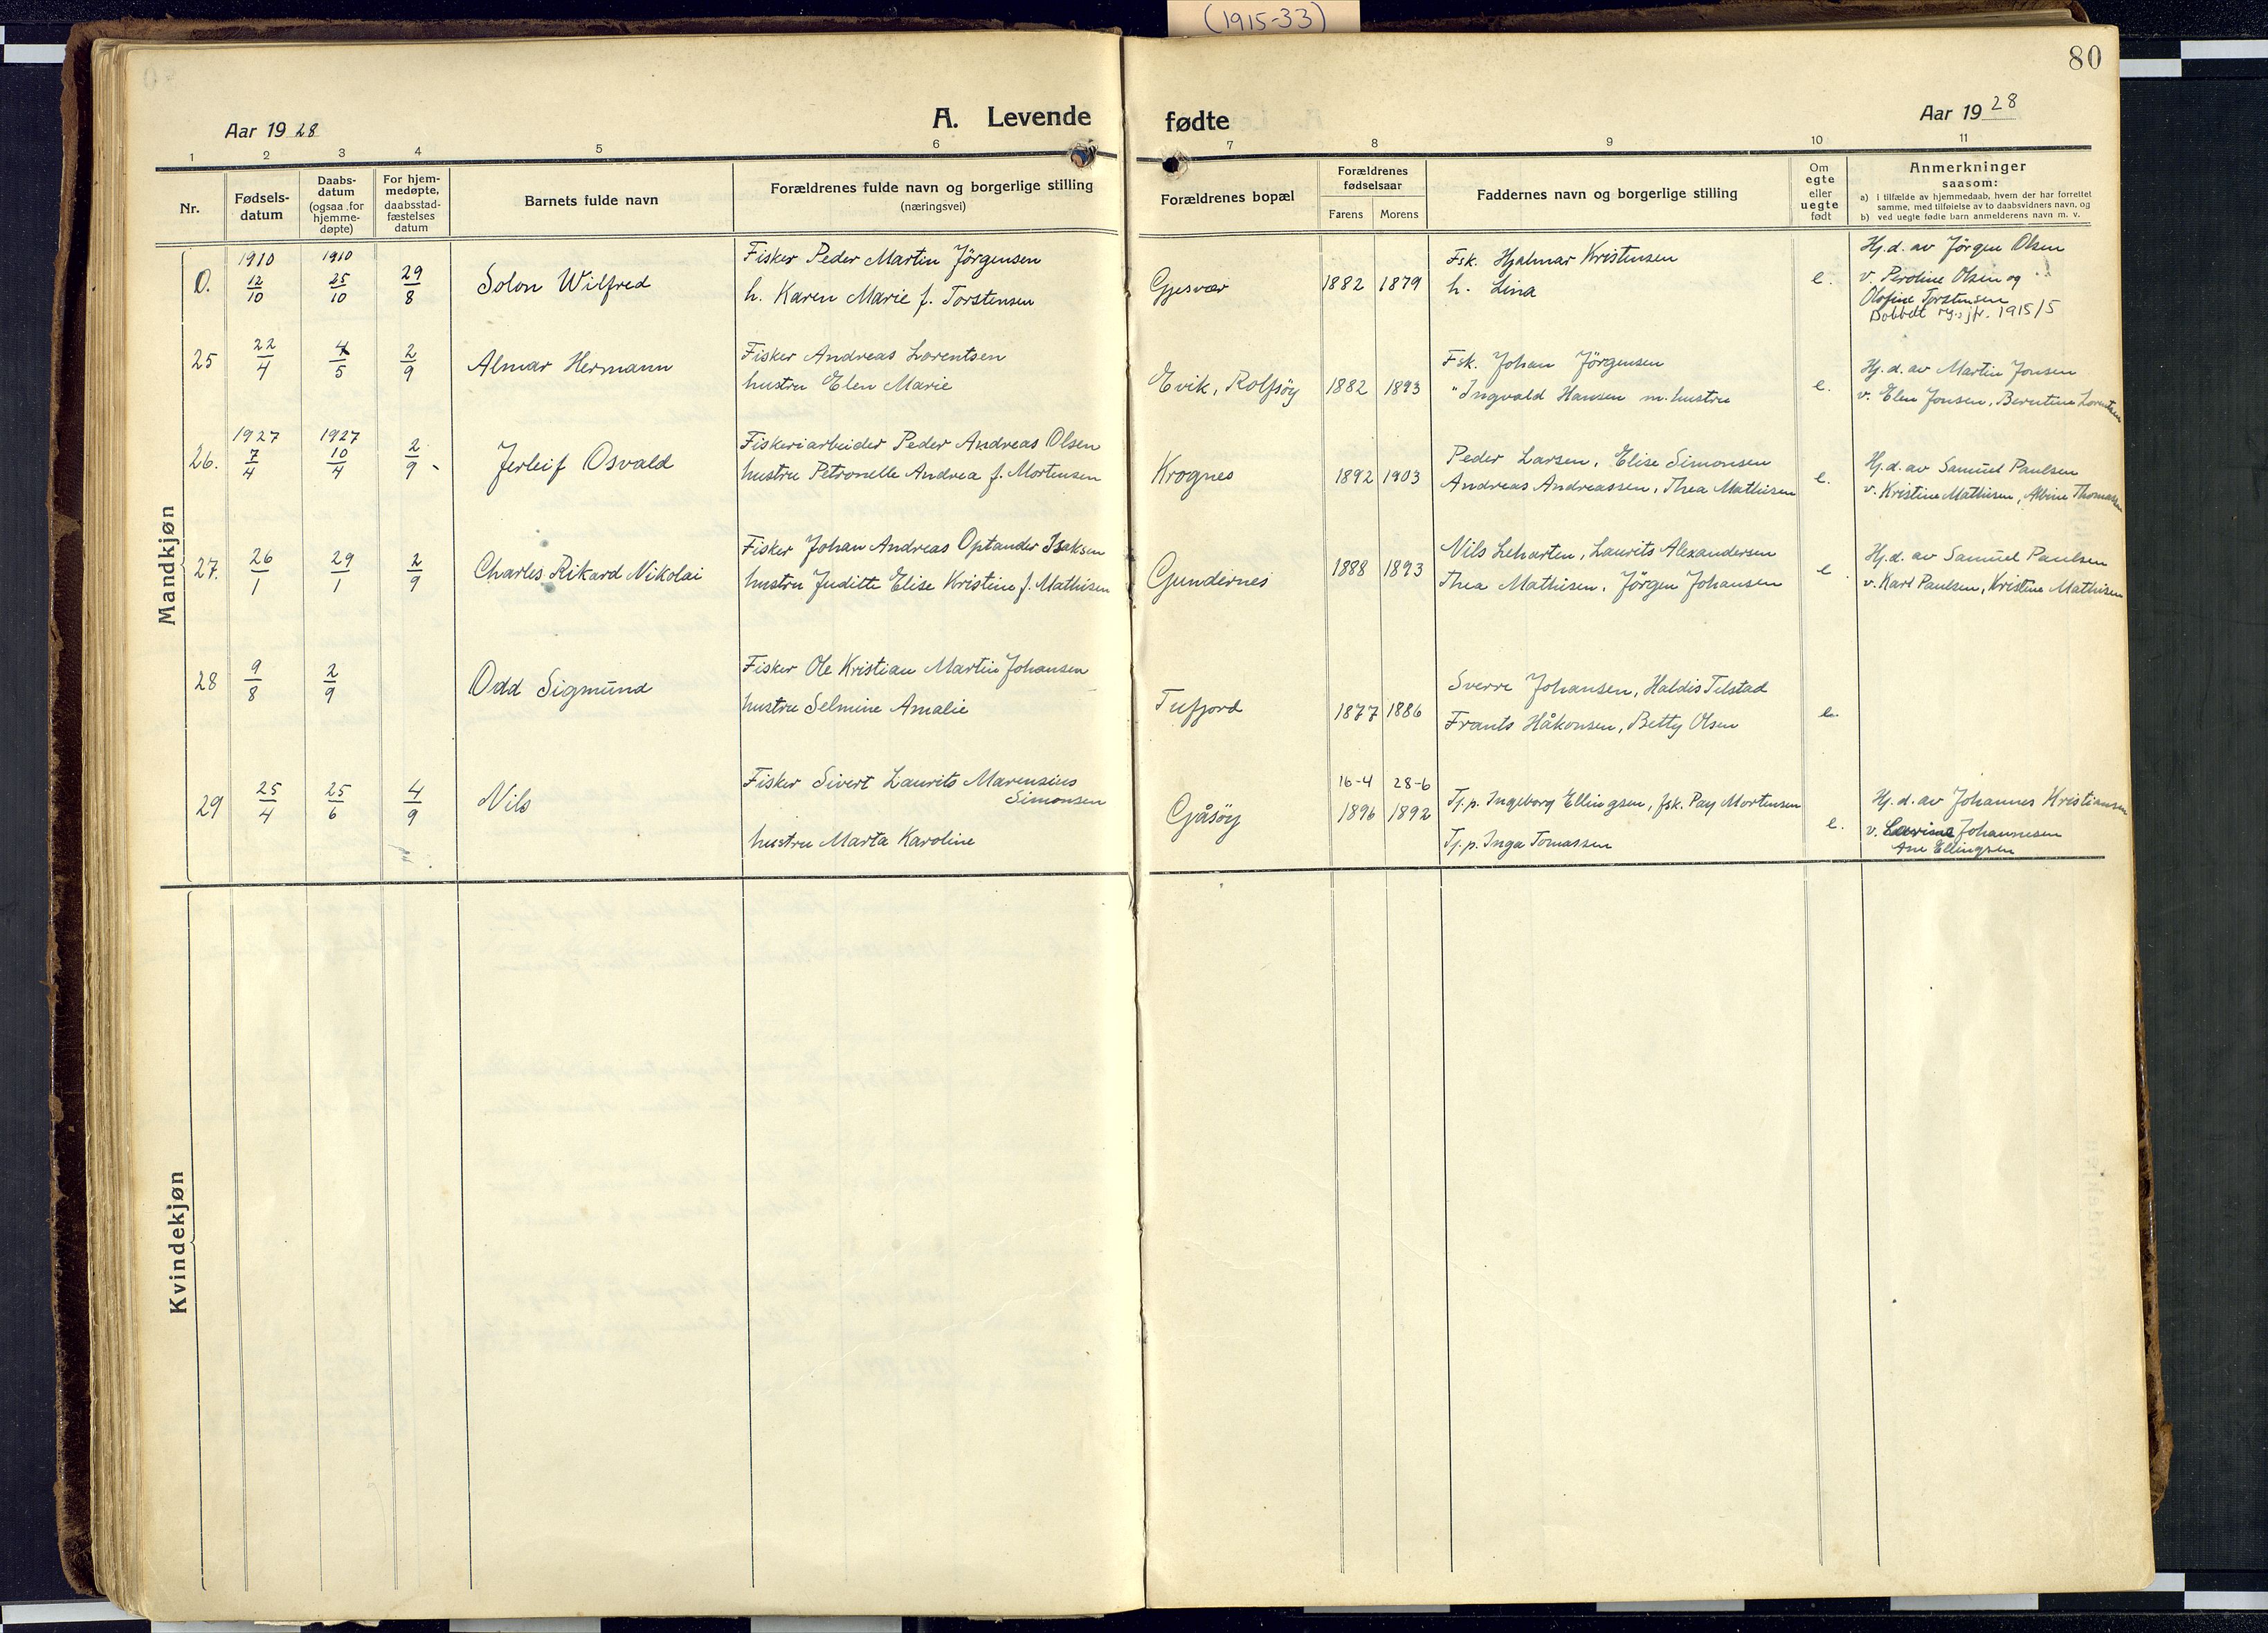 (1915-33)
80
Aar 1928
A. Levende
fødte
Aar 1928
1 2 3 4 5 6 7 8 9 10 11
Nr.
Fødsels-
datum
Daabs-
datum
(ogsaa for
hjemme-
døpte)
For hjem-
medøpte,
daabsstad-
fæstelses
datum
Barnets fulde navn
Forældrenes fulde navn og borgerlige stilling
(næringsvei)
Forældrenes bopæl
Forældrenes
fødselsaar
Farens Morens
Faddernes navn og borgerlige stilling
Om
egte
eller
uegte
født
Anmerkninger
saasom:
a) i tilfælde av hjemmedaab, hvem der har forrettet
samme, med tilføielse av to daabsvidners navn, og
b) ved uegte fødte barn anmelderens navn m. v.
Mandkjøn
0. 1910 12/10 1910 25/10 29/8 Solon Wilfred
Fisker Peder Martin Jörgensen
h. Karen Marie f. Torstensen
Gjesvær 1882 1879
Fsk. Hjalmar Kristensen
h. Lina
e.
Hj.d. av Jørgen Olsen
v. Peroline Olsen og
Olofine Torstensen
Dobbelt reg., jfr. 1915/5
25 22/4 4/5 2/9 Almar Hermann
Fisker Andreas Lorentsen
hustru Elen Marie
Evik, Rolfsöy 1882 1893
Fsk. Johan Jörgensen
" Ingvald Hansen m. hustru
e.
Hj.d. av Martin Jonsen
v. Elen Jonsen, Berntine Lorentsen
26. 1927 7/4 1927 10/4 2/9 Jerleif Osvald
Fiskeriarbeider Peder Andreas Olsen
hustru Petronelle Andrea f. Mortensen
Krognes 1892 1903
Peder Larsen, Elise Simonsen
Andreas Andreassen, Thea Mathisen
e.
Hj.d. av Samuel Paulsen
v. Kristine Mathisen, Albine Thomassen
27. 26/1 29/1 2/9 Charles Rikard Nikolai
Fisker Johan Andreas Optander Isaksen
hustru Juditte Elise Kristine f. Mathisen
Gunnernes 1888 1893
Nils Leharten, Laurits Alexandersen
Thea Mathisen, Jørgen Johansen
e
Hj.d. av Samuel Paulsen
v. Karl Paulsen, Kristine Mathisen
28 9/8 2/9 Odd Sigmund
Fisker Ole Kristian Martin Johansen
hustru Selmine Amalie
Tufjord 1877 1886
Sverre Johansen, Haldis Tilstad
Frants Håkonsen, Betty Olsen
e.
29 25/4 25/6 4/9 Nils
Fisker Sivert Laurits Marensius
Simonsen
hustru Marta Karoline
Gåsöy 16-4 1896 28-6 1892
Tj.p. Ingeborg Ellingsen, fsk. Pay Mortensen
Tj.p. Inga Tomassen
e.
Hj.d. av Johannes Kristiansen
v. Lovise Johannesen
Ane Ellingsen
Kvindekjøn